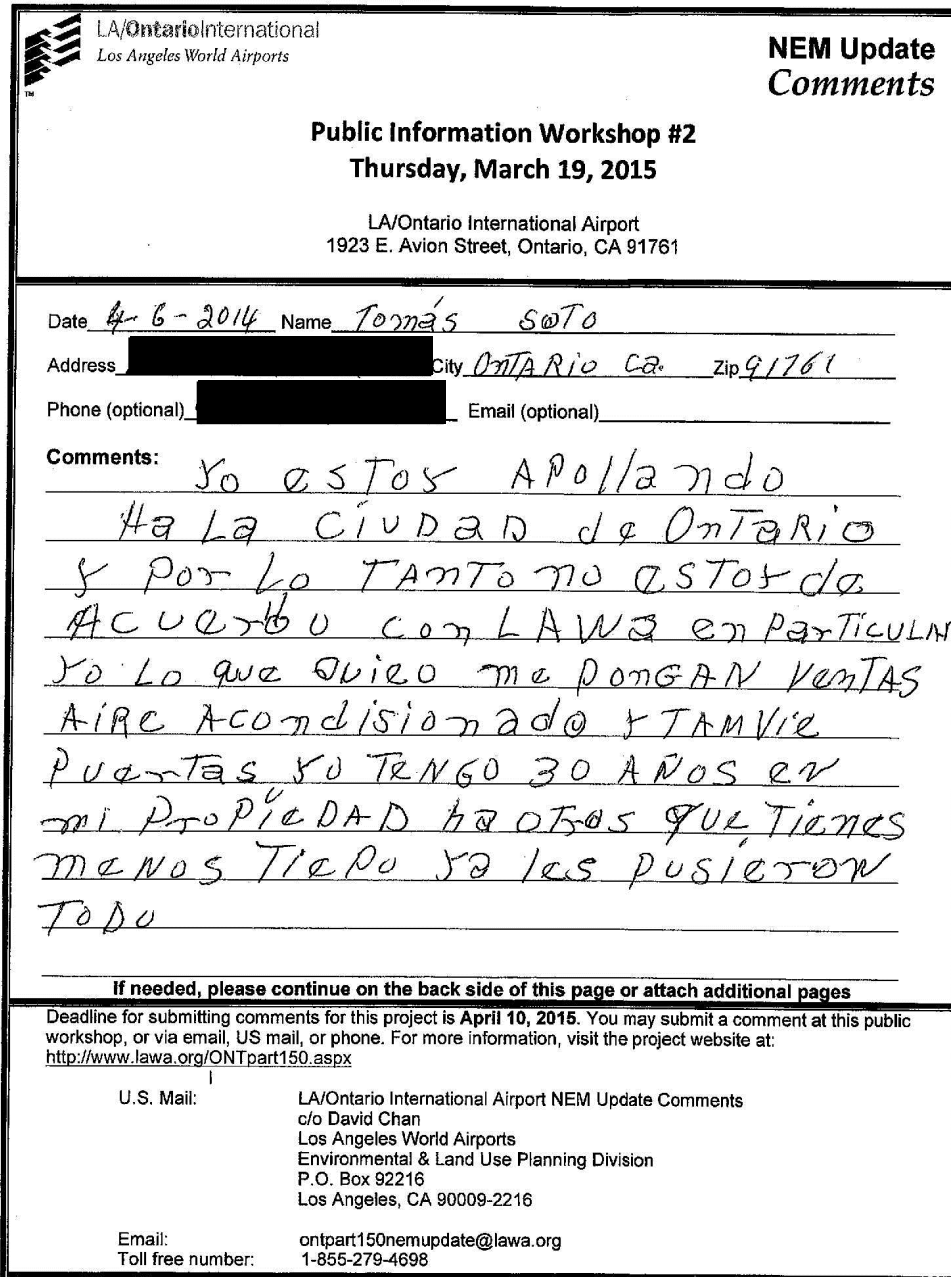 LA/OntarioInternational
Los Angeles World Airports
TM
NEM Update
Comments
Public Information Workshop #2
Thursday, March 19, 2015
LA/Ontario International Airport
1923 E. Avion Street, Ontario, CA 91761
Date 4-6-2014 Name Tomás SOTO
Address City ONTARIO Ca. Zip 91761
Phone (optional) Email (optional)
Comments: Yo ESTOY APOllando
Ha La CIUDAD de ONTARIO
Y POR LO TANTO NO ESTOY de
ACUERDO con LAWA en PARTICULAR
Yo Lo que QUIEO me PONGAN VenTAS
AIRE Acondisionado Y TAMVIE
PUERTAS YO TENGO 30 AÑOS EN
mi PROPIEDAD ha otros QUE TIENES
MENOS TIEPO Ya les PUSIERON
TODO
If needed, please continue on the back side of this page or attach additional pages
Deadline for submitting comments for this project is April 10, 2015. You may submit a comment at this public
workshop, or via email, US mail, or phone. For more information, visit the project website at:
http://www.lawa.org/ONTpart150.aspx
U.S. Mail: LA/Ontario International Airport NEM Update Comments
c/o David Chan
Los Angeles World Airports
Environmental & Land Use Planning Division
P.O. Box 92216
Los Angeles, CA 90009-2216
Email: ontpart150nemupdate@lawa.org
Toll free number: 1-855-279-4698